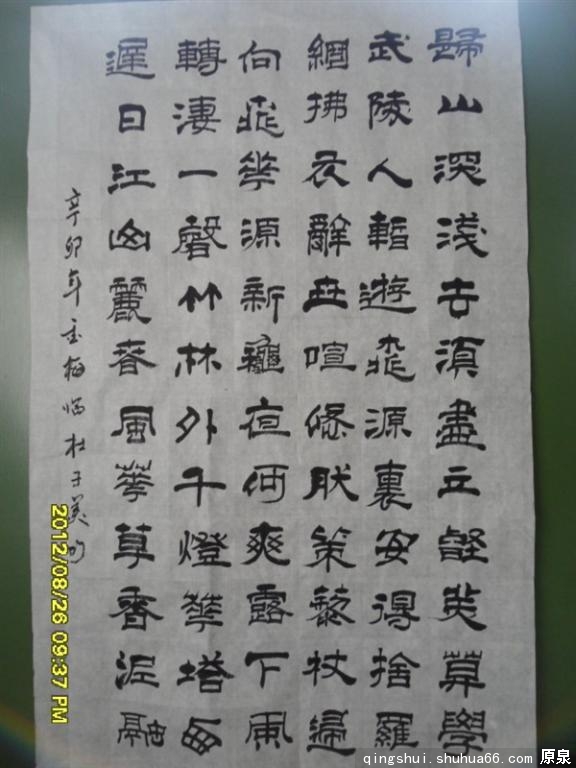 歸山深淺去須盡丘壑美莫學
武陵人暫遊桃源裏安得捨羅
網拂衣辭世喧悠然策藜杖歸
向桃華源新龝夜何爽露下風
轉淒一磬竹林外千燈華塔西
遲日江山麗春風華草香泥融
辛卯年梅臨杜子美句
2012/08/26 09:37 PM
qingshui.shuhua66.com 原泉